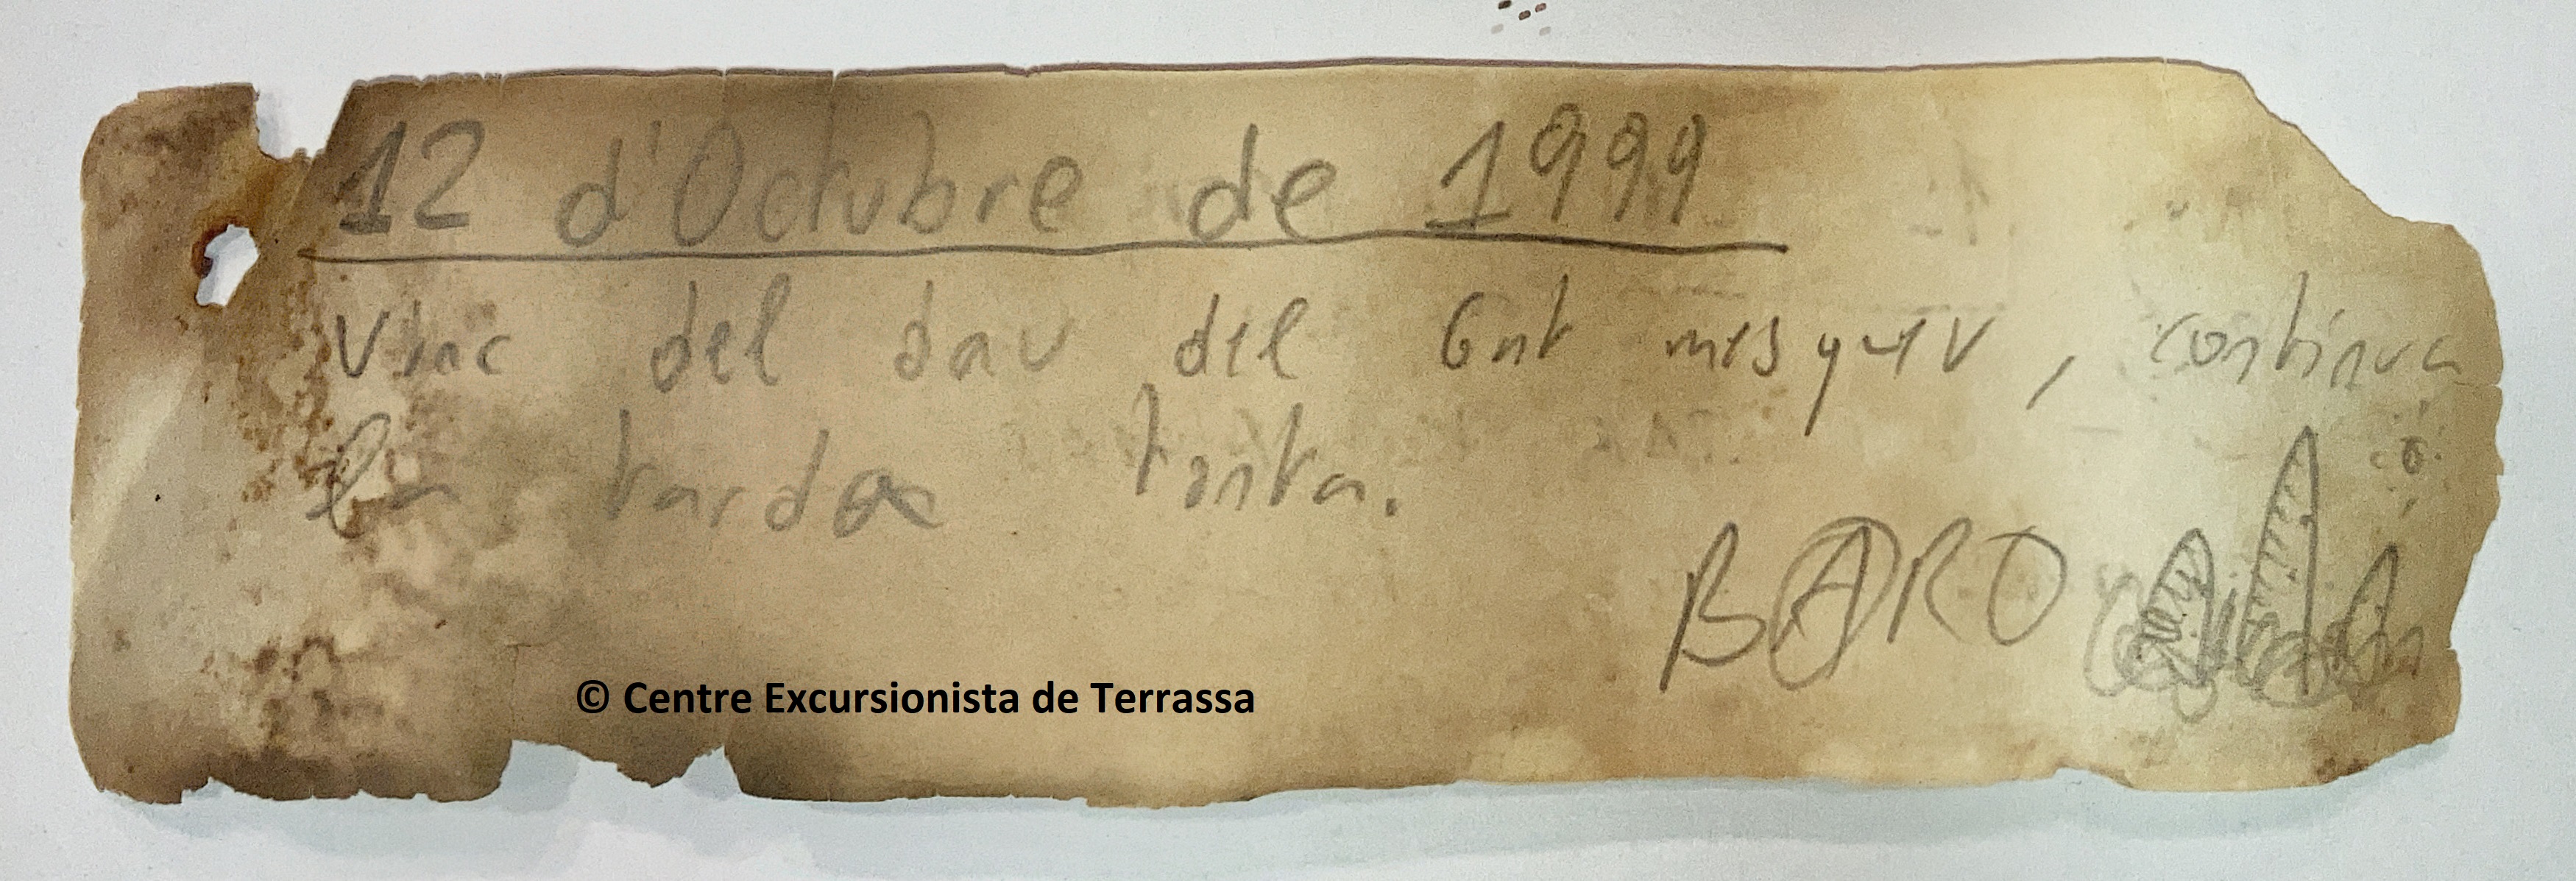 12 d'Octubre de 1999
Vinc del dau del Gat mesquer, continua
la tarda tonta.
BARO
© Centre Excursionista de Terrassa